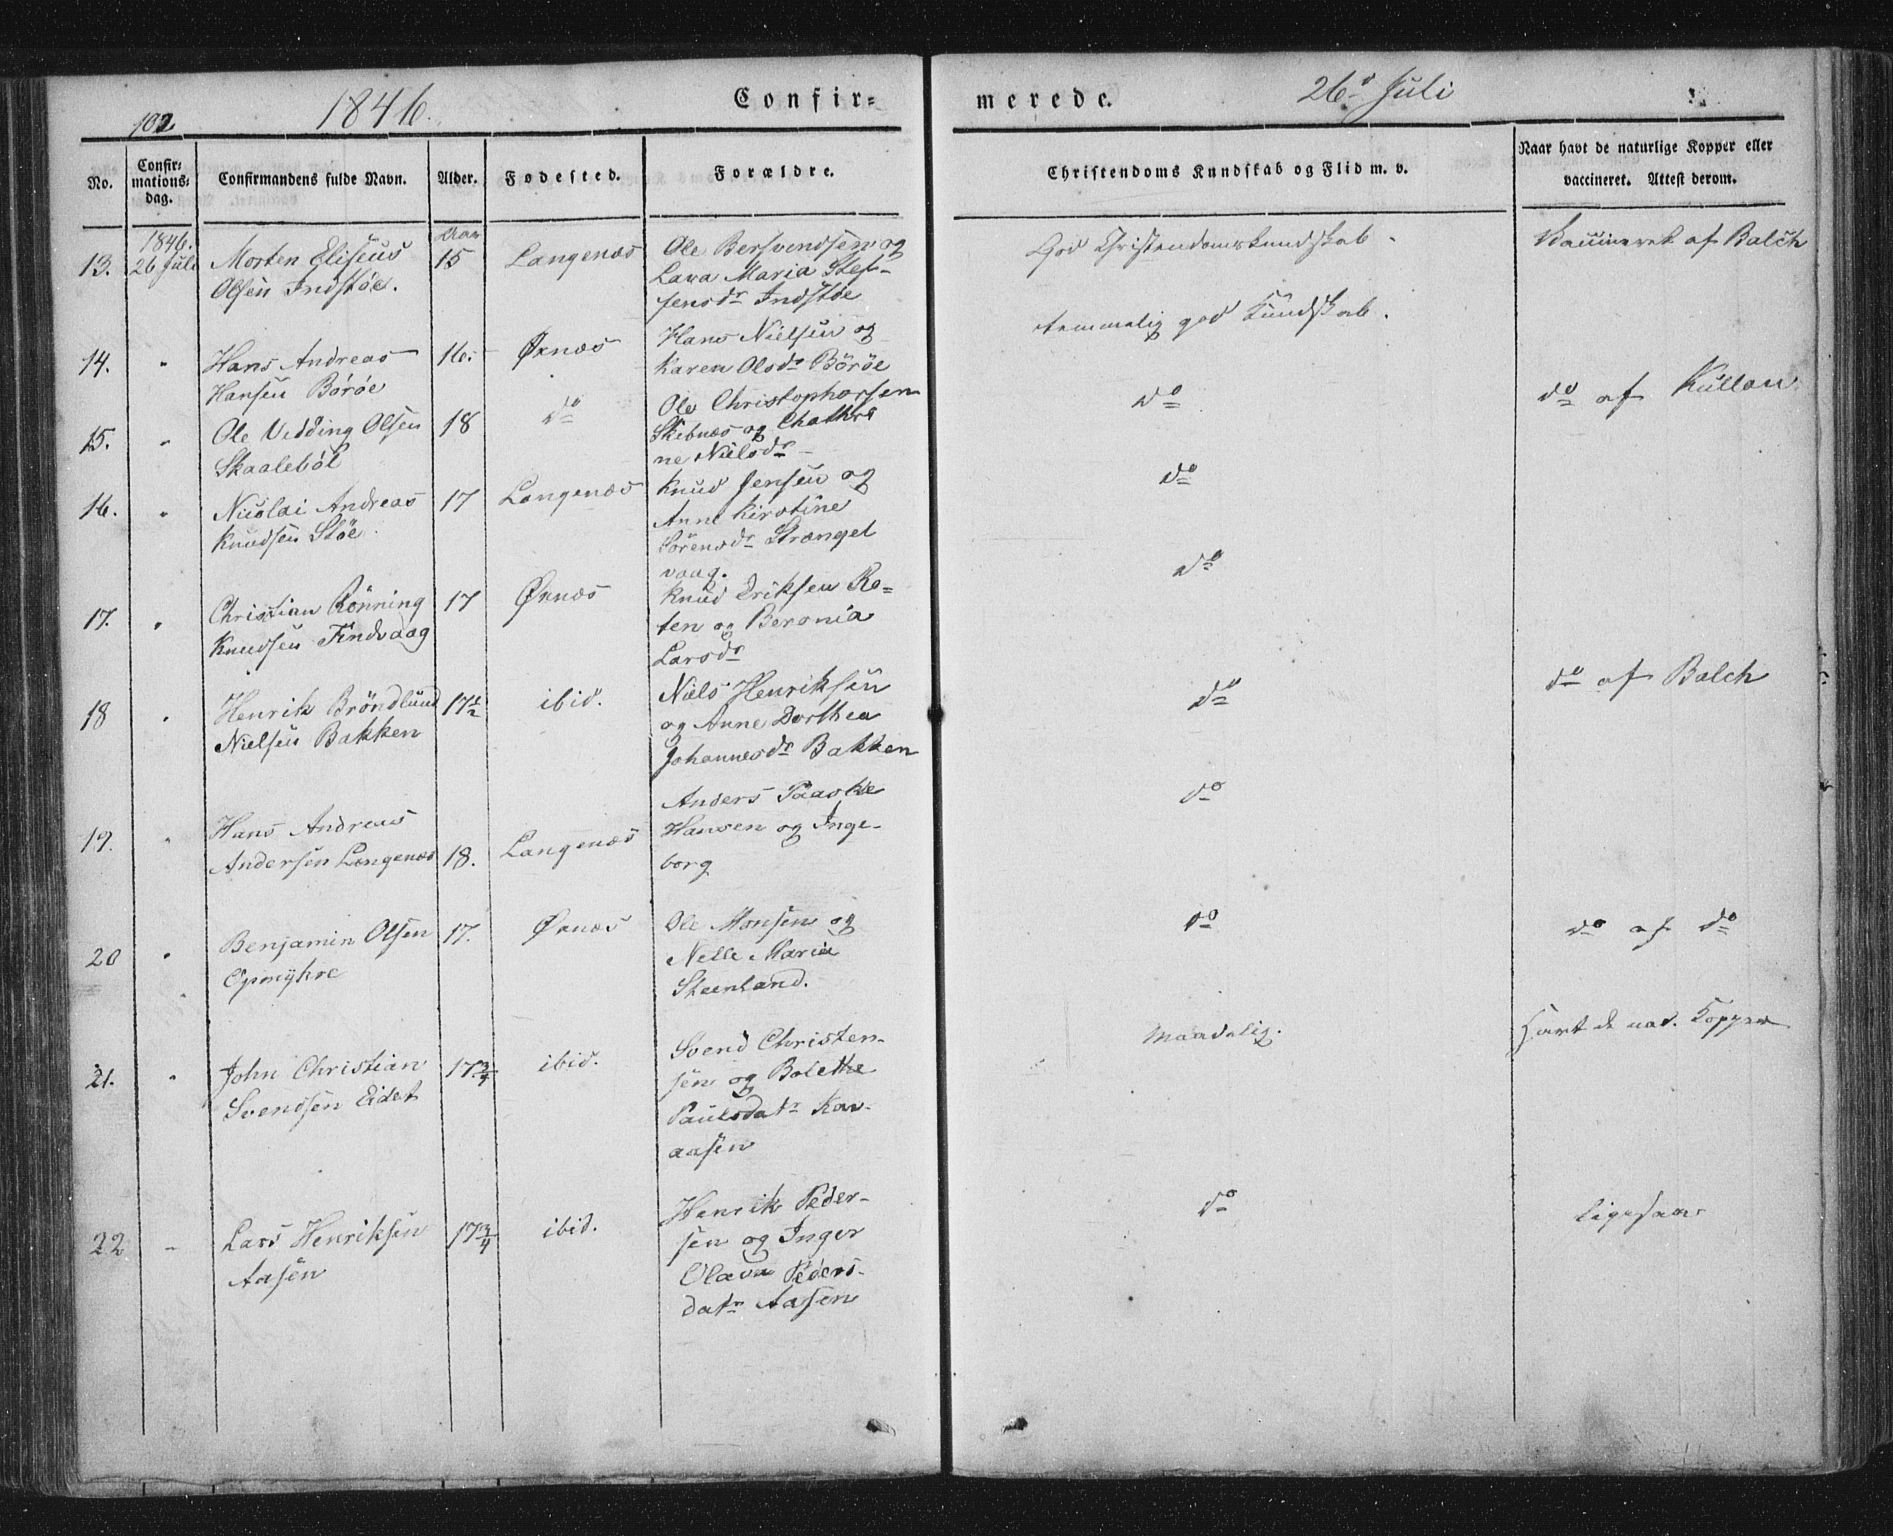 102
1846.
Confir=
No.
Confir=
mations=
dag.
Confirmandens fulde Navn.
Alder.
Fødested.
Forældre.
1846.
13. 26 Juli
Morten Eliseus
Olsen Indstöe.
Aar
15
Langenæs
Ole Bersvendsen og
Lava Maria Stef-
fensdr Indstöe
14. "
Hans Andreas
Hansen Böröe
16.
Øxnæs
Hans Nielsen og
Karen Olsdr Böröe
15. "
Ole Vedding Olsen
Skaaleböl
18
do
Ole Christophersen
Skibnæs og Chathri
ne Nielsdr
16. "
Nicolai Andreas
Knudsen Stöe
17
Langenæs
Knud Jensen og
Anne Kirstine
Sörensdr Strænget
vaag.
17. "
Christian Rönning
Knudsen Tindvaag
17
Øxnæs
Knud Eriksen Ro-
ten og Beronia
Larsdr
18 "
Henrik Bröndlund
Nielsen Bakken
17½
ibid.
Niels Henriksen
og Anne Dorthea
Johannesdr Bakken
19. "
Hans Andreas
Andersen Langenæs
18.
Langenæs
Anders Paaske
Hansen og Inge-
borg
20 "
Benjamin Olsen
Opmyhre
17.
Øxnæs
Ole Monsen og
Nelle Maria
Steenland.
21. "
John Christian
Svendsen Eidet
17¾
ibid.
Svend Christen-
sen og Bolethe
Paulsdatr Kav-
aasen
22 "
Lars Henriksen
Aasen
17¾
ibid.
Henrik Peder-
sen og Inger
Olava Peders-
datr Aasen
merede.
26de Juli
Christendoms Kundskab og Flid m. v.
Naar havt de naturlige Kopper eller
vaccineret. Attest derom.
God Christendomskundskab.
Vaccineret af Balch
temmelig god Kundskab.
do
do af Kullan
do
do
do
do af Balch
do
do
do af do
Maadelig.
Havt de nat. Kopper
do
Ligesaa